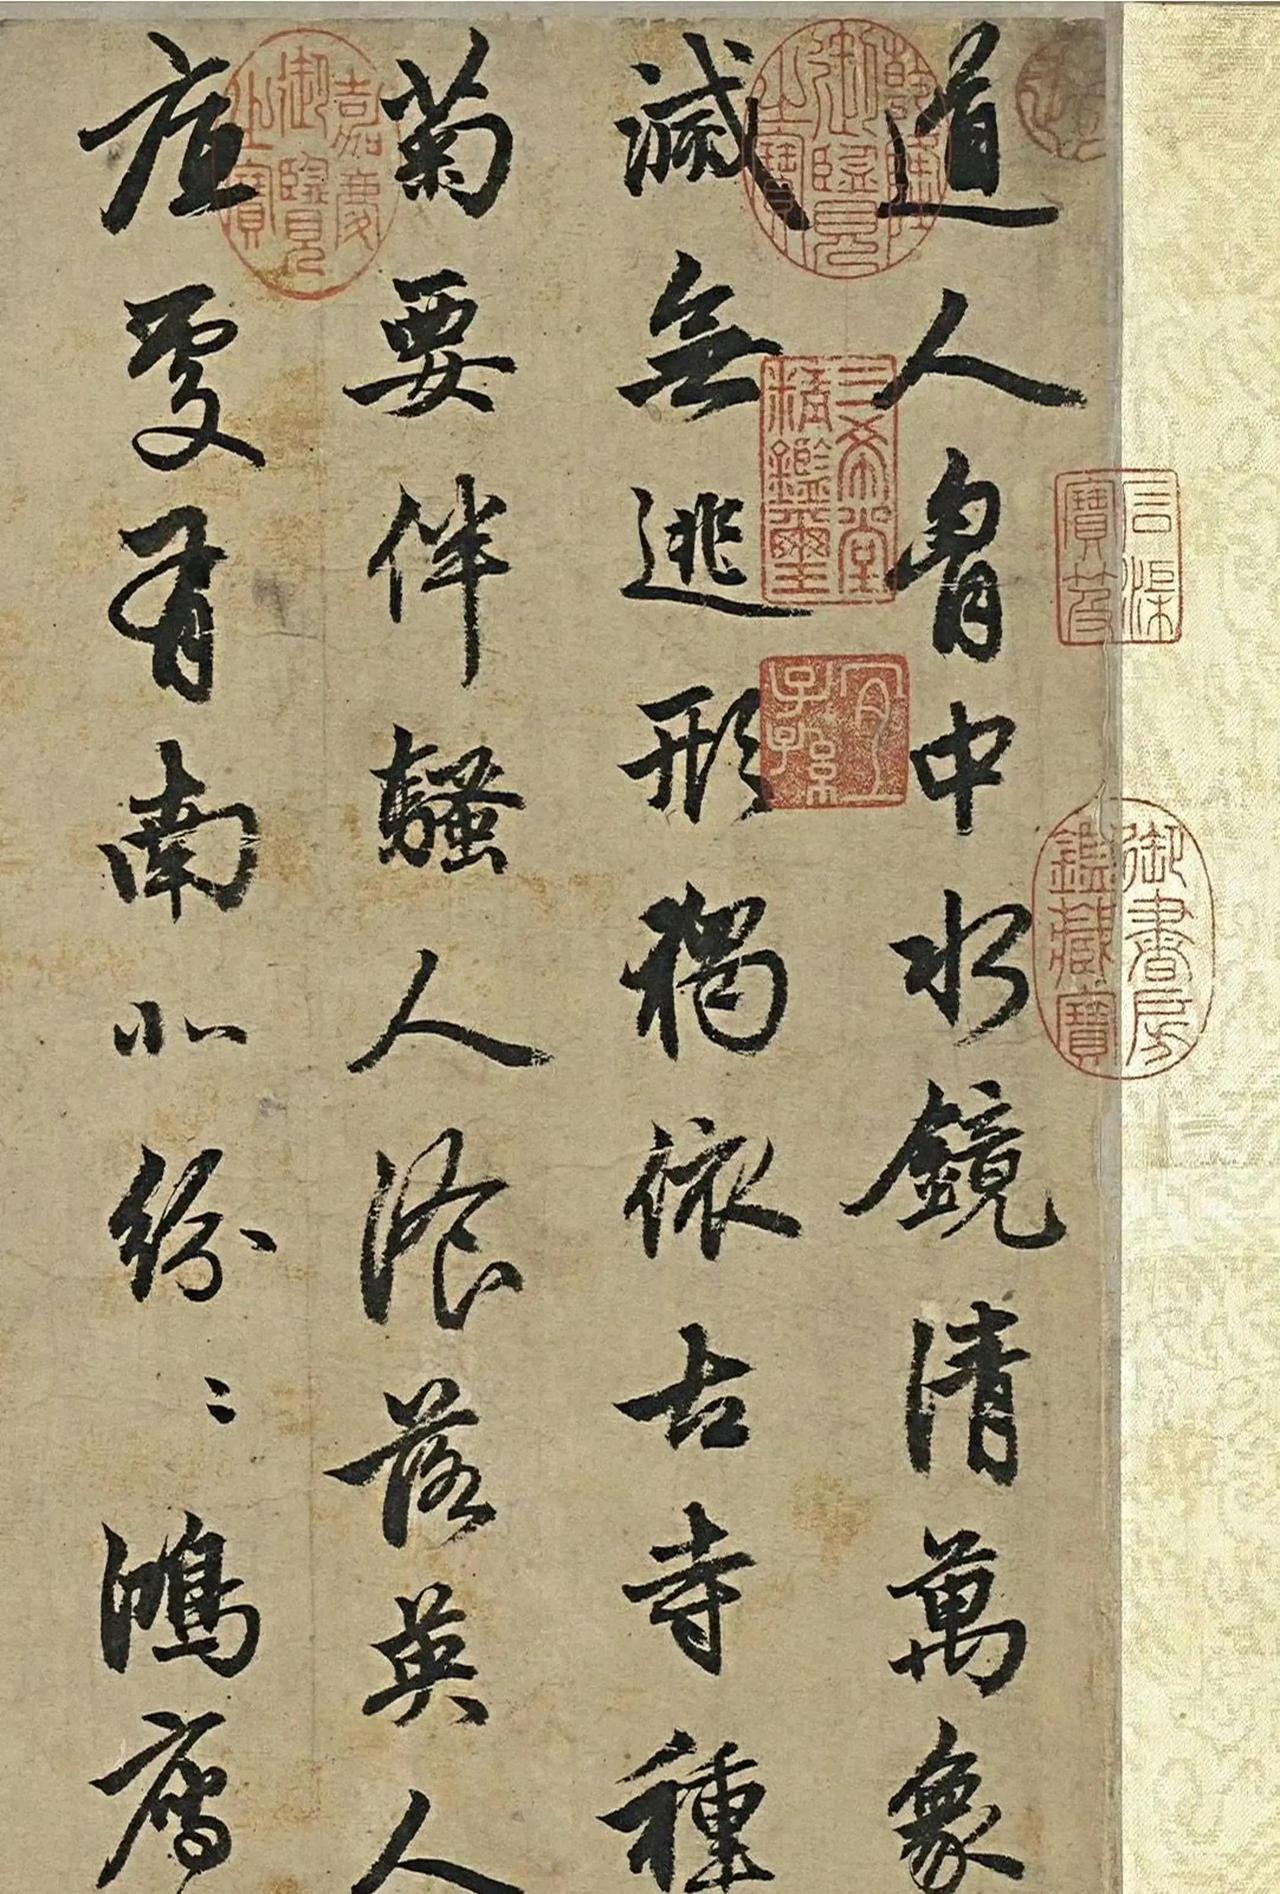 道人胷中水鏡清萬象
滅無逃形獨依古寺種
菊要伴騷人飡落英人
底處有南北紛〻鴻鴈
御書房鑑藏寶
石渠寶笈
乾隆御覽之寶
三希堂精鑑璽
宜子孫
嘉慶御覽之寶